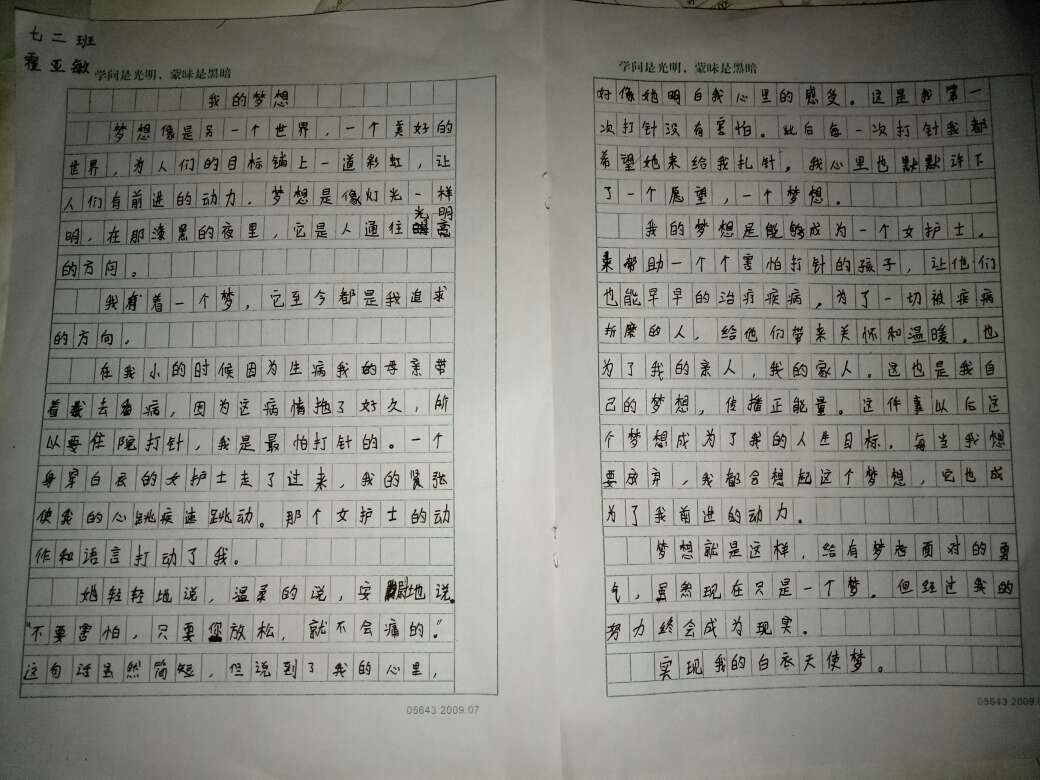 七二班
霍亚敏
学问是光明，蒙昧是黑暗
我的梦想
梦想像是另一个世界，一个美好的
世界，为人们的目标铺上一道彩虹，让
人们有前进的动力。梦想是像灯光一样
明，在那漆黑的夜里，它是人通往光明
的方向。
我有着一个梦，它至今都是我追求
的方向。
在我小的时候因为生病我的母亲带
着我去看病，因为这病情拖了好久，所
以要住院打针，我是最怕打针的。一个
身穿白衣的女护士走了过来，我的紧张
使我的心跳疾速跳动。那个女护士的动
作和语言打动了我。
她轻轻地说，温柔的说，安慰地说。
"不要害怕，只要您放松，就不会痛的。"
这句话虽然简短，但说到了我的心里，
05643 2009.07
学问是光明，蒙昧是黑暗
好像她明白我心里的感受。这是我第一
次打针没有害怕。此后每一次打针我都
希望她来给我扎针，我心里也默默许下
了一个愿望，一个梦想。
我的梦想是能够成为一个女护士，
来帮助一个个害怕打针的孩子，让他们
也能早早的治疗疾病，为了一切被疾病
折磨的人，给他们带来关怀和温暖。也
为了我的亲人，我的家人。这也是我自
己的梦想，传播正能量。这件事以后这
个梦想成为了我的人生目标，每当我想
要放弃，我都会想起这个梦想，它也成
为了我前进的动力。
梦想就是这样，给有梦者面对的勇
气，虽然现在只是一个梦。但经过我的
努力终会成为现实。
实现我的白衣天使梦。
05643 2009.0